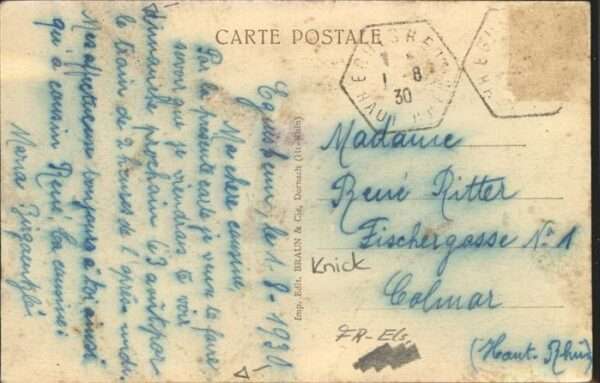 CARTE POSTALE
EGUISHEIM
1 - 8
30
HAUT-RHIN
Eguisheim, le 1-8-1930
Ma chère cousine
Par la présente carte je veux te faire
savoir que je viendrai te voir
dimanche prochain le 3 août par
le train de 2 heures de l'après midi.
Mes affectueux toujours à toi aussi
qu'à cousin René, ta cousine:
Maria
Imp. Edit. BRAUN & Cie, Dornach (Ht-Rhin)
Madame
René Ritter
Fischergasse No 1
Colmar
(Haut-Rhin)
Knick
FR-Els.